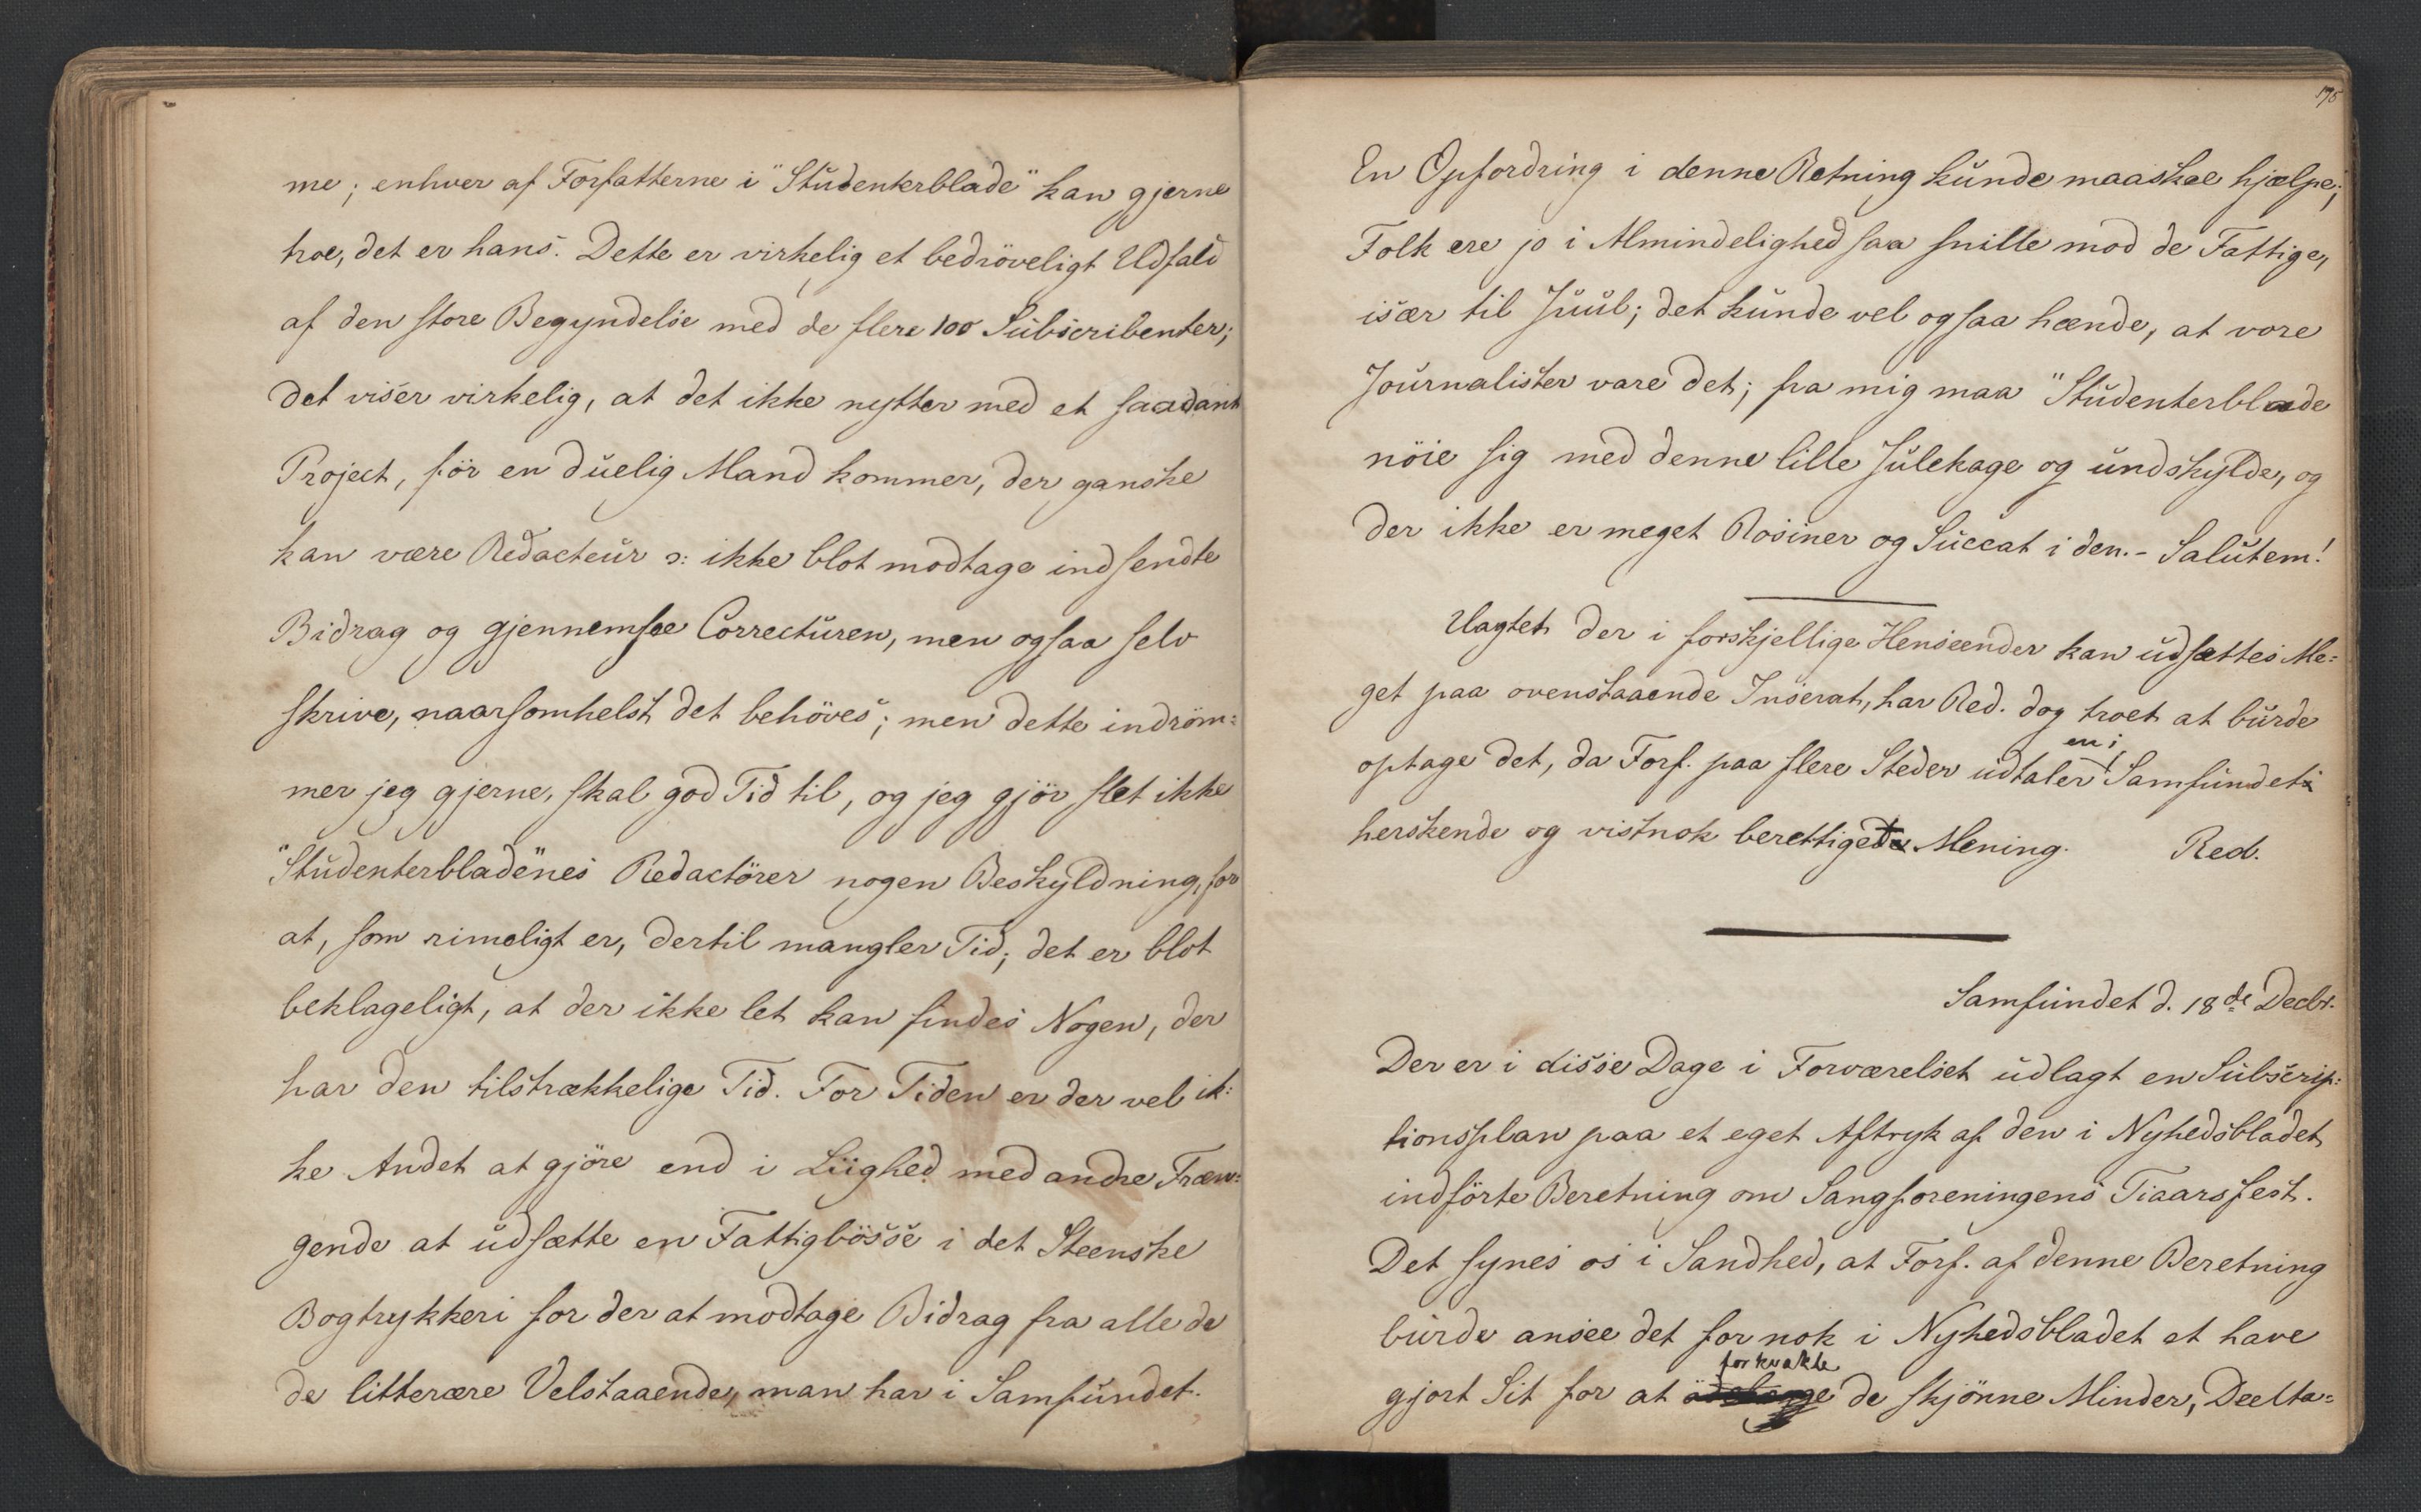 me; enhver af Forfatterne i "Studenterblade" kan gjerne
troe, det er hans. Dette er virkelig et bedröveligt Udfald
af den store Begyndelse med de flere 100 Subscribenter;
det viser virkelig, at det ikke nytter med et saadant
Project, för en duelig Mand kommer, der ganske
kan være Redacteur ɔ: ikke blot modtage indsendte
Bidrag og gjennemsee Correcturen, men ogsaa selv
skrive, naarsomhelst det behöves; men dette indröm=
mer jeg gjerne, skal god Tid til, og jeg gjör slet ikke
"Studenterblade"nes Redactörer nogen Beskyldning, for
at, som rimeligt er, dertil mangler Tid; det er blot
beklageligt, at der ikke let kan findes Nogen, der
har den tilstrækkelige Tid. For Tiden er der vel ik=
ke Andet at gjöre end i Liighed med andre Træn=
gende at udsætte en Fattigbösse i det Steenske
Bogtrykkeri for der at modtage Bidrag fra alle de
de litterære Velstaaende, man har i Samfundet.
195
En Opfordring i denne Retning kunde maaskee hjælpe;
Folk ere jo i Almindelighed saa snille mod de Fattige,
især til Juul; det kunde vel ogsaa hænde, at vore
Journalister vare det; fra mig maa "Studenterblade
nöie sig med denne lille Julekage og undskylde, og
der ikke er meget Rosiner og Succat i den.- Salutem!
Uagtet der i forskjellige Henseender kan udsættes Me=
get paa ovenstaaende Inserat, har Red. dog troet at burde
en i
optage det, da Forf. paa flere Steder udtaler Samfundet
herskende og vistnok berettiget Mening. Red.
Samfundet d. 18de Decbr.
Der er i disse Dage i Forværelset udlagt en Subscrip=
tionsplan paa et eget Aftryk af den i Nyhedsbladet
indförte Beretning om Sangforeningens Tiaarsfest.
Det synes os i Sandhed, at Forf. af denne Beretning
burde ansee det for nok i Nyhedsbladet at have
forkvakle
gjort Sit for at de skjönne Minder, Deelta=